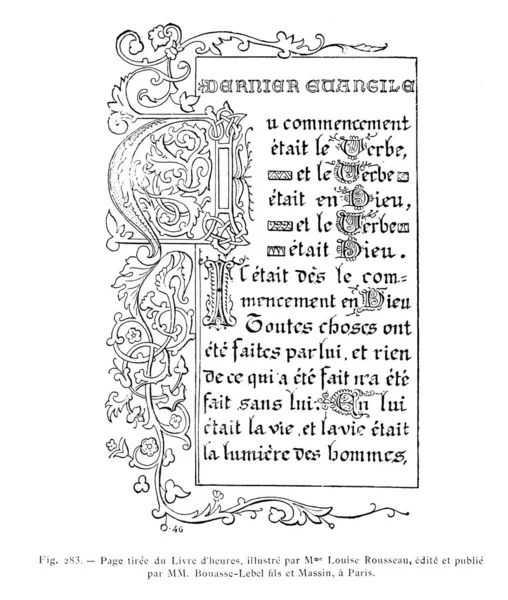 DERNIER EVANGILE
Au commencement
était le Verbe,
et le Verbe
était en Dieu,
et le Verbe
était Dieu.
Il était dès le com=
mencement en Dieu
Toutes choses ont
été faites par lui, et rien
de ce qui a été fait n'a été
fait sans lui. En lui
était la vie, et la vie était
la lumière des hommes,
J-46
Fig. 283. — Page tirée du Livre d'heures, illustré par Mme Louise Rousseau, édité et publié
par MM. Bouasse-Lebel fils et Massin, à Paris.